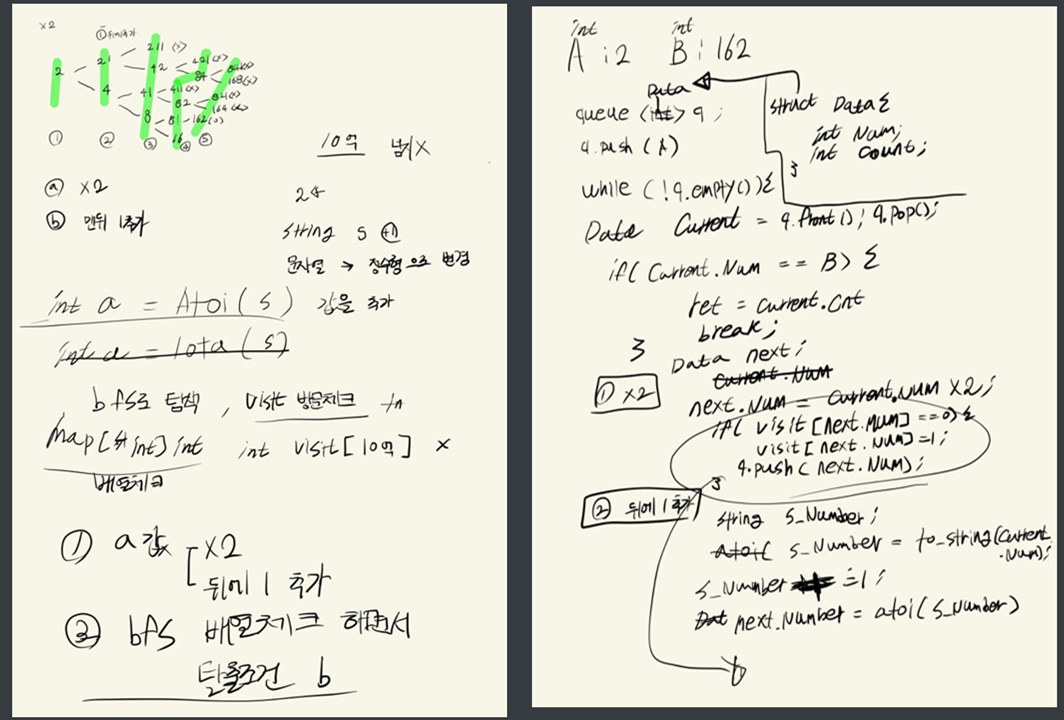 x2
① 뒤에 1추가
2
21
4
211 (x)
42
41
8
421 (x)
84
411 (x)
82
81
16
168 (x)
821 (x)
164 (x)
162 (o)
① ② ③ ④ ⑤
10억 넘기X
ⓐ x2
ⓑ 맨뒤 1추가
string s +1
문자열 → 정수형으로 변경
int a = Atoi(s) 값을 추가
int a = iota(s)
bfs로 탐색, visit 방문체크
map[int] int int visit[10억] x
배열체크
① a값 [ x2
뒤에 1 추가
② bfs 배열체크 하면서
탈출조건 b
int int
A : 2 B : 162
Data
queue <int> q ;
q.push (A)
struct Data {
int Num;
int count;
}
while (!q.empty()) {
Data Current = q.front(); q.pop();
if( Current.Num == B) {
ret = current.cnt
break;
}
Data next;
Current.Num
① x2
next.Num = Current.Num X2;
if( visit [next.Num] ==0) {
visit [next.Num] =1;
q.push ( next.Num);
}
② 뒤에 1 추가
string s_Number;
Atoi( s_Number = to_string(Current.Num);
s_Number += 1;
Dat next.Number = atoi(s_Number)